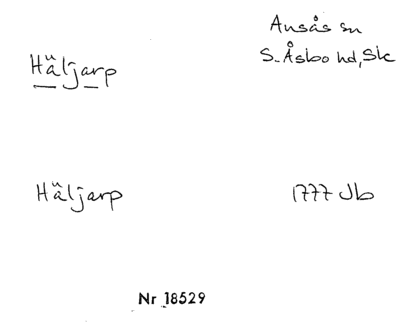 Häljarp
Ausås sn
S. Åsbo hd, Sk
Häljarp
1777 Jb
Nr 18529